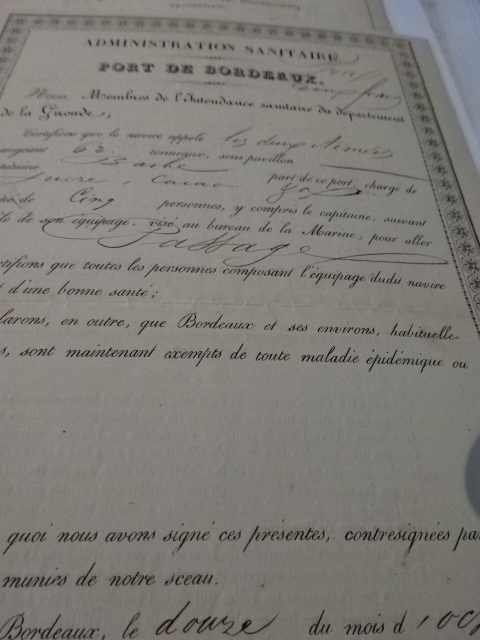 ADMINISTRATION SANITAIRE
PORT DE BORDEAUX.
Nous, Membres de l'Intendance sanitaire du département
de la Gironde,
Certifions que le navire appelé les deux
62 tonneaux, sous pavillon
part de ce port, chargé de
Sucre, Cacao
de Cinq personnes, y compris le capitaine, suivant
de son équipage, visé au bureau de la Marine, pour aller
Passage
tifions que toutes les personnes composant l'équipage dudit navire
t d'une bonne santé;
larons, en outre, que Bordeaux et ses environs, habituelle-
s, sont maintenant exempts de toute maladie épidémique ou
quoi nous avons signé ces présentes, contresignées pa
munies de notre sceau.
Bordeaux, le douze du mois d